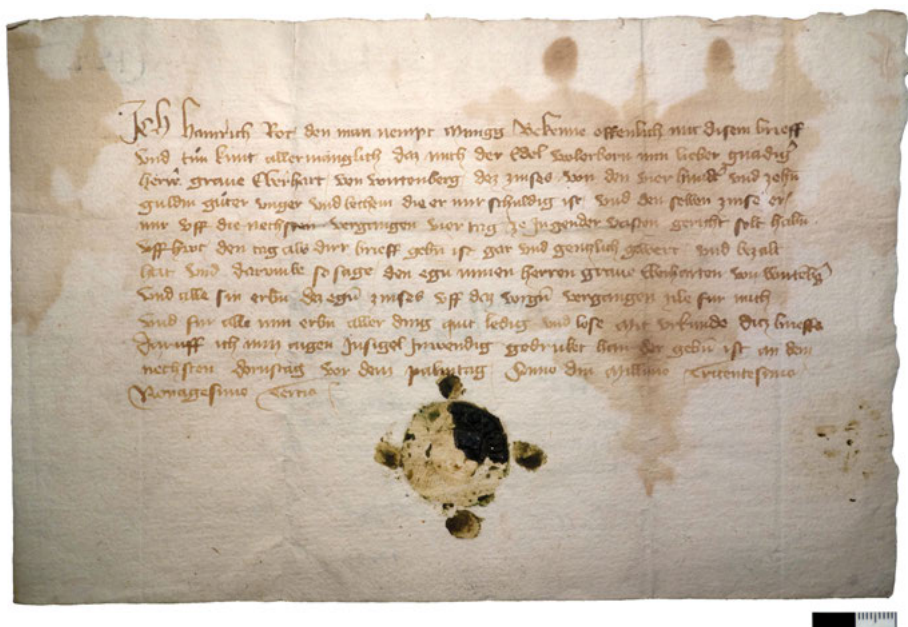 Ich Hainrich Rot den man nempt Mungg Bekenne offenlich mit disem brieff
und tůn kunt allermånglich daz mich der Edel wolerborn min lieber gnådig
herre grave Eberhart von Wirtenberg dez zinses von den vier hundert und zehen
guldin güter unger und behem die er mir schuldig ist und den selben zinse er
mir uff die nechsten vergangen vier tag ze Ingender vasten gericht solt habn
uff hút den tag als dirr brieff gebn ist gar und gentzlich gewert und bezalt
hat und darumbe so sage den egn minen herren grave Eberharten von Wirtenbg
und alle sin erbn dez egn zinses uff daz vorgn vergangen zile für mich
und für alle min erbn aller ding quit ledig und lose Mit urkunde diz brieffs
Daruff ich min aigen Insigel Inwendig gedruket han der gebn ist an dem
nechsten Dornstag vor dem palmtag Anno dni Millimo Tricentesimo
Nonagesimo Tercio